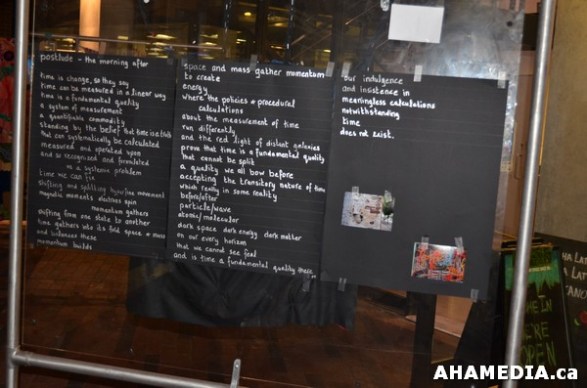 postlude - the morning after
time is change, so they say
time can be measured in a linear way
time is a fundamental quality
a system of measurement
a quantifiable commodity
standing by the belief that time
that can systematically be calculated
measured and operated upon
and is recognised and formulated
as a systemic problem
time we can fix
shifting and splitting movement
magnetic moments electrons spin
momentum gathers
shifting from one state to another
time gathers into its fold space + mass
and these
momentum builds
space and mass gather momentum
to create
energy
where the policies + procedural
calculations
about the measurement of time
run differently
and the red light of distant galaxies
prove that time is a fundamental quality
that cannot be split
a quality we all bow before
accepting the transitory nature of time
which reality in some reality
before/after
particle/wave
atomic/molecular
dark space dark energy dark matter
on our every horizon
that we cannot see feel
and is time a fundamental quality there
our indulgence
and insistence in
meaningless calculations
notwithstanding
time
does not exist.
OPEN
AHAMEDIA.ca